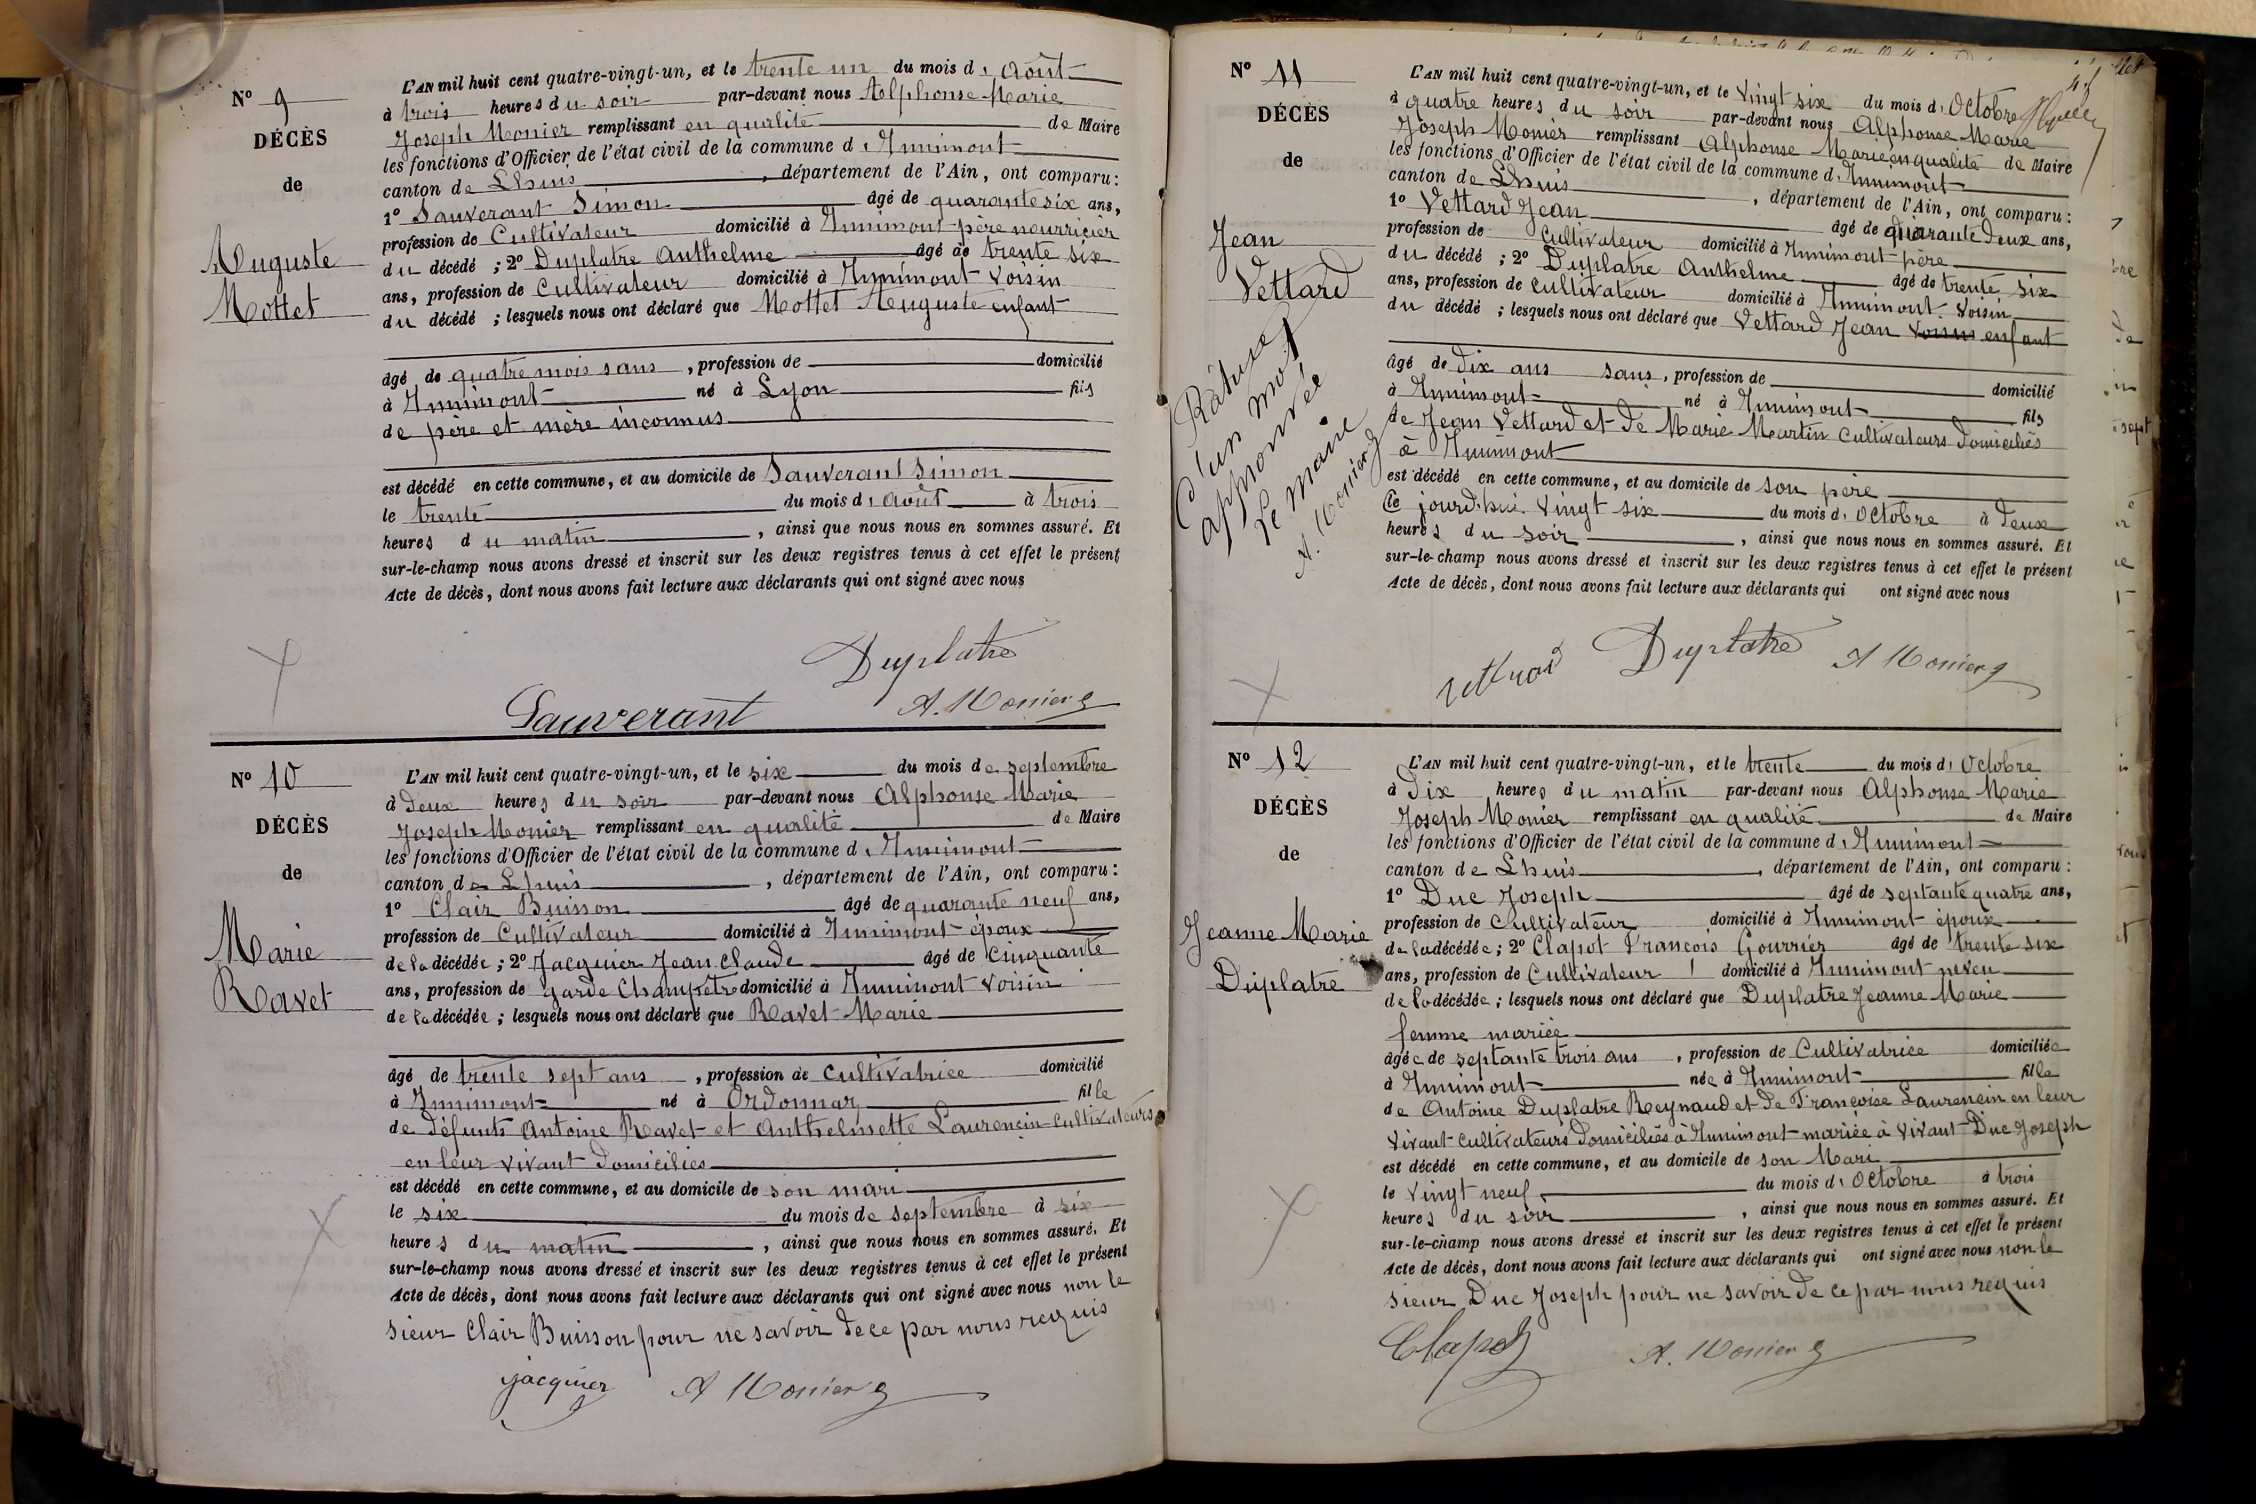 N° 9
DÉCÈS
de
Auguste
Mottet
L'AN mil huit cent quatre-vingt-un, et le trente un du mois d' Août
à trois heures du soir par-devant nous Alphonse Marie
Joseph Monier remplissant en qualité de Maire
les fonctions d'Officier de l'état civil de la commune d' Innimont
canton de Lhuis, département de l'Ain, ont comparu:
1° Sauverant Simon âgé de quarante six ans,
profession de Cultivateur domicilié à Innimont père nourricier
du décédé ; 2° Duplatre Anthelme âgé de trente six
ans, profession de Cultivateur domicilié à Innimont Voisin
du décédé ; lesquels nous ont déclaré que Mottet Auguste enfant
âgé de quatre mois sans, profession de domicilié
à Innimont né à Lyon fils
de père et mère inconnus
est décédé en cette commune, et au domicile de Sauverant Simon
le trente du mois d' août à trois
heures du matin, ainsi que nous nous en sommes assuré. Et
sur-le-champ nous avons dressé et inscrit sur les deux registres tenus à cet effet le présent
Acte de décès, dont nous avons fait lecture aux déclarants qui ont signé avec nous
Duplatre
Sauverant A. Monier
N° 10
DÉCÈS
de
Marie
Ravet
L'AN mil huit cent quatre-vingt-un, et le six du mois de septembre
à Deux heures du soir par-devant nous Alphonse Marie
Joseph Monier remplissant en qualité de Maire
les fonctions d'Officier de l'état civil de la commune d' Innimont
canton de Lhuis, département de l'Ain, ont comparu:
1° Clair Buisson âgé de quarante neuf ans,
profession de Cultivateur domicilié à Innimont époux
de la décédée ; 2° Jacquier Jean Claude âgé de cinquante
ans, profession de garde Champêtre domicilié à Innimont Voisin
de la décédée ; lesquels nous ont déclaré que Ravet Marie
âgé de trente sept ans, profession de Cultivatrice domicilié
à Innimont né à Ordonnaz fille
de défunts Antoine Ravet et Anthelmette Laurencin Cultivateurs
en leur vivant Domiciliés
est décédé en cette commune, et au domicile de son mari
le six du mois de septembre à six
heures du matin, ainsi que nous nous en sommes assuré. Et
sur-le-champ nous avons dressé et inscrit sur les deux registres tenus à cet effet le présent
Acte de décès, dont nous avons fait lecture aux déclarants qui ont signé avec nous non le
sieur Clair Buisson pour ne savoir de ce par nous requis
jacquier A Monier
N° 11
DÉCÈS
de
Jean
Vettard
Râture
d'un mot
approuvée
Le maire
A. Monier
L'AN mil huit cent quatre-vingt-un, et le Vingt six du mois d' Octobre
à quatre heures du soir par-devant nous Alphonse Marie
Joseph Monier remplissant Alphonse Marie en qualité de Maire
les fonctions d'Officier de l'état civil de la commune d' Innimont
canton de Lhuis, département de l'Ain, ont comparu:
1° Vettard Jean âgé de quarante Deux ans,
profession de Cultivateur domicilié à Innimont père
du décédé ; 2° Duplatre Anthelme âgé de trente six
ans, profession de Cultivateur domicilié à Innimont Voisin
du décédé ; lesquels nous ont déclaré que Vettard Jean voisin enfant
âgé de dix ans sans, profession de domicilié
à Innimont né à Innimont fils
de Jean Vettard et de Marie Martin Cultivateurs domiciliés
à Innimont
est décédé en cette commune, et au domicile de son père
Ce jourd'hui Vingt six du mois d' Octobre à Deux
heures du soir, ainsi que nous nous en sommes assuré. Et
sur-le-champ nous avons dressé et inscrit sur les deux registres tenus à cet effet le présent
Acte de décès, dont nous avons fait lecture aux déclarants qui ont signé avec nous
Duplatre A Monier
N° 12
DÉCÈS
de
Jeanne Marie
Duplatre
L'AN mil huit cent quatre-vingt-un, et le trente du mois d' Octobre
à Dix heures du matin par-devant nous Alphonse Marie
Joseph Monier remplissant en qualité de Maire
les fonctions d'Officier de l'état civil de la commune d' Innimont
canton de Lhuis, département de l'Ain, ont comparu:
1° Duc Joseph âgé de septante quatre ans,
profession de Cultivateur domicilié à Innimont époux
de la décédée ; 2° Clapot François Gourrier âgé de trente six
ans, profession de Cultivateur domicilié à Innimont neveu
de la décédée ; lesquels nous ont déclaré que Duplatre Jeanne Marie
femme mariée
âgée de septante trois ans, profession de Cultivatrice domiciliée
à Innimont née à Innimont fille
de Antoine Duplatre Reynaud et de Françoise Laurencin en leur
Vivant Cultivateurs Domiciliés à Innimont mariée à vivant Duc Joseph
est décédé en cette commune, et au domicile de son Mari
le Vingt neuf du mois d' Octobre à trois
heures du soir, ainsi que nous nous en sommes assuré. Et
sur-le-champ nous avons dressé et inscrit sur les deux registres tenus à cet effet le présent
Acte de décès, dont nous avons fait lecture aux déclarants qui ont signé avec nous non le
sieur Duc Joseph pour ne savoir de ce par nous requis
Clapot A. Monier